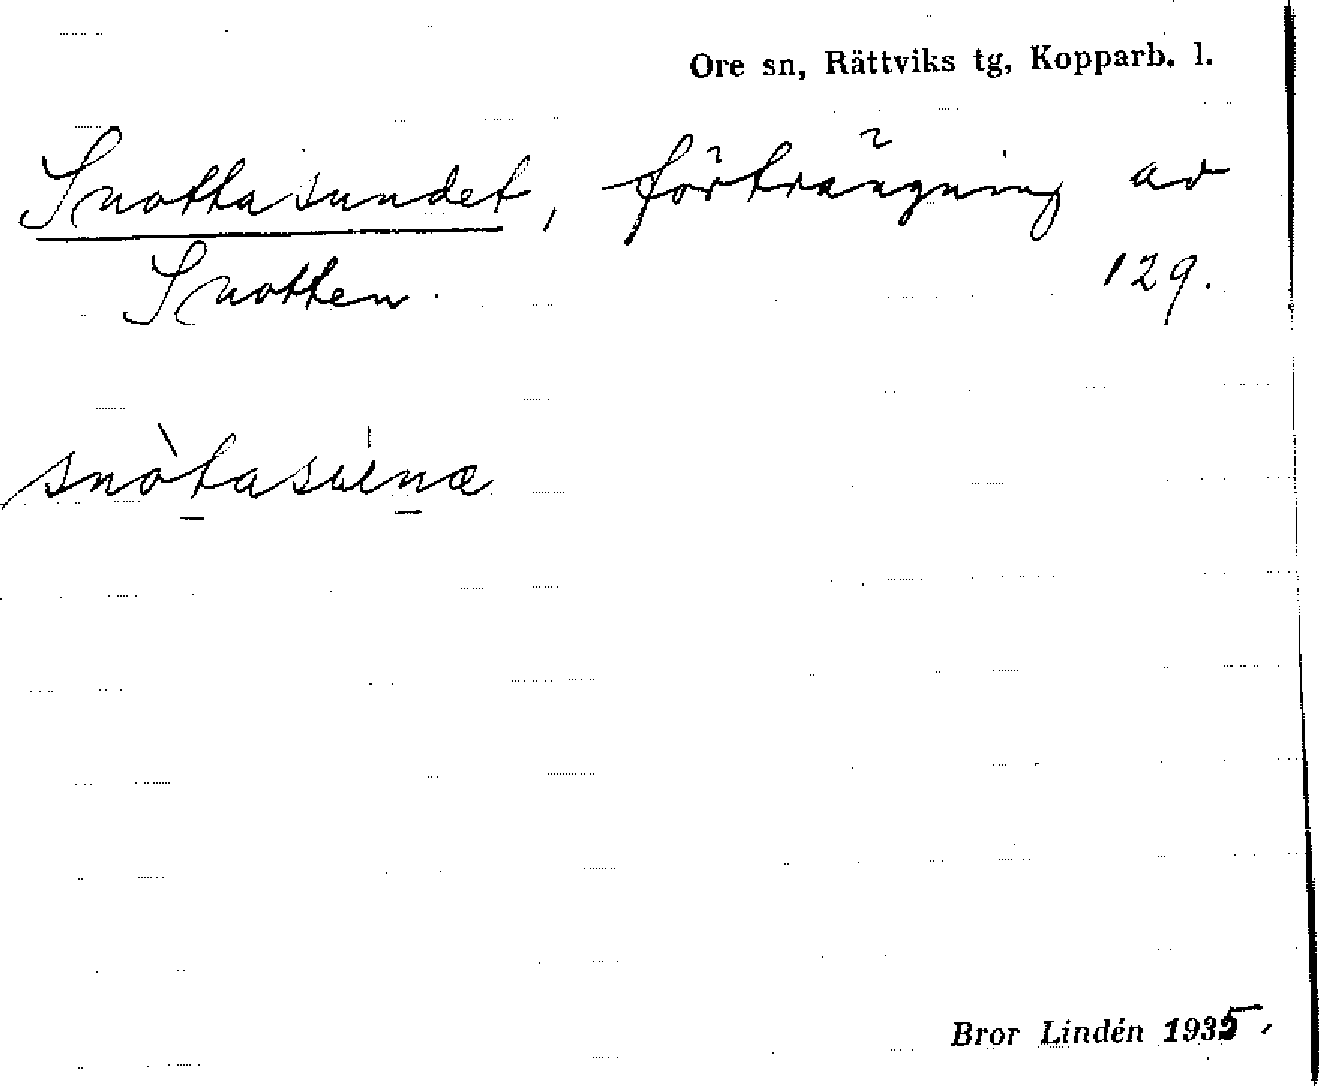 Ore sn, Rättviks tg, Kopparb. l.
Snottasundet, förträngning av
Snotten. 129.
snòtasuna
Bror Lindén 1935.